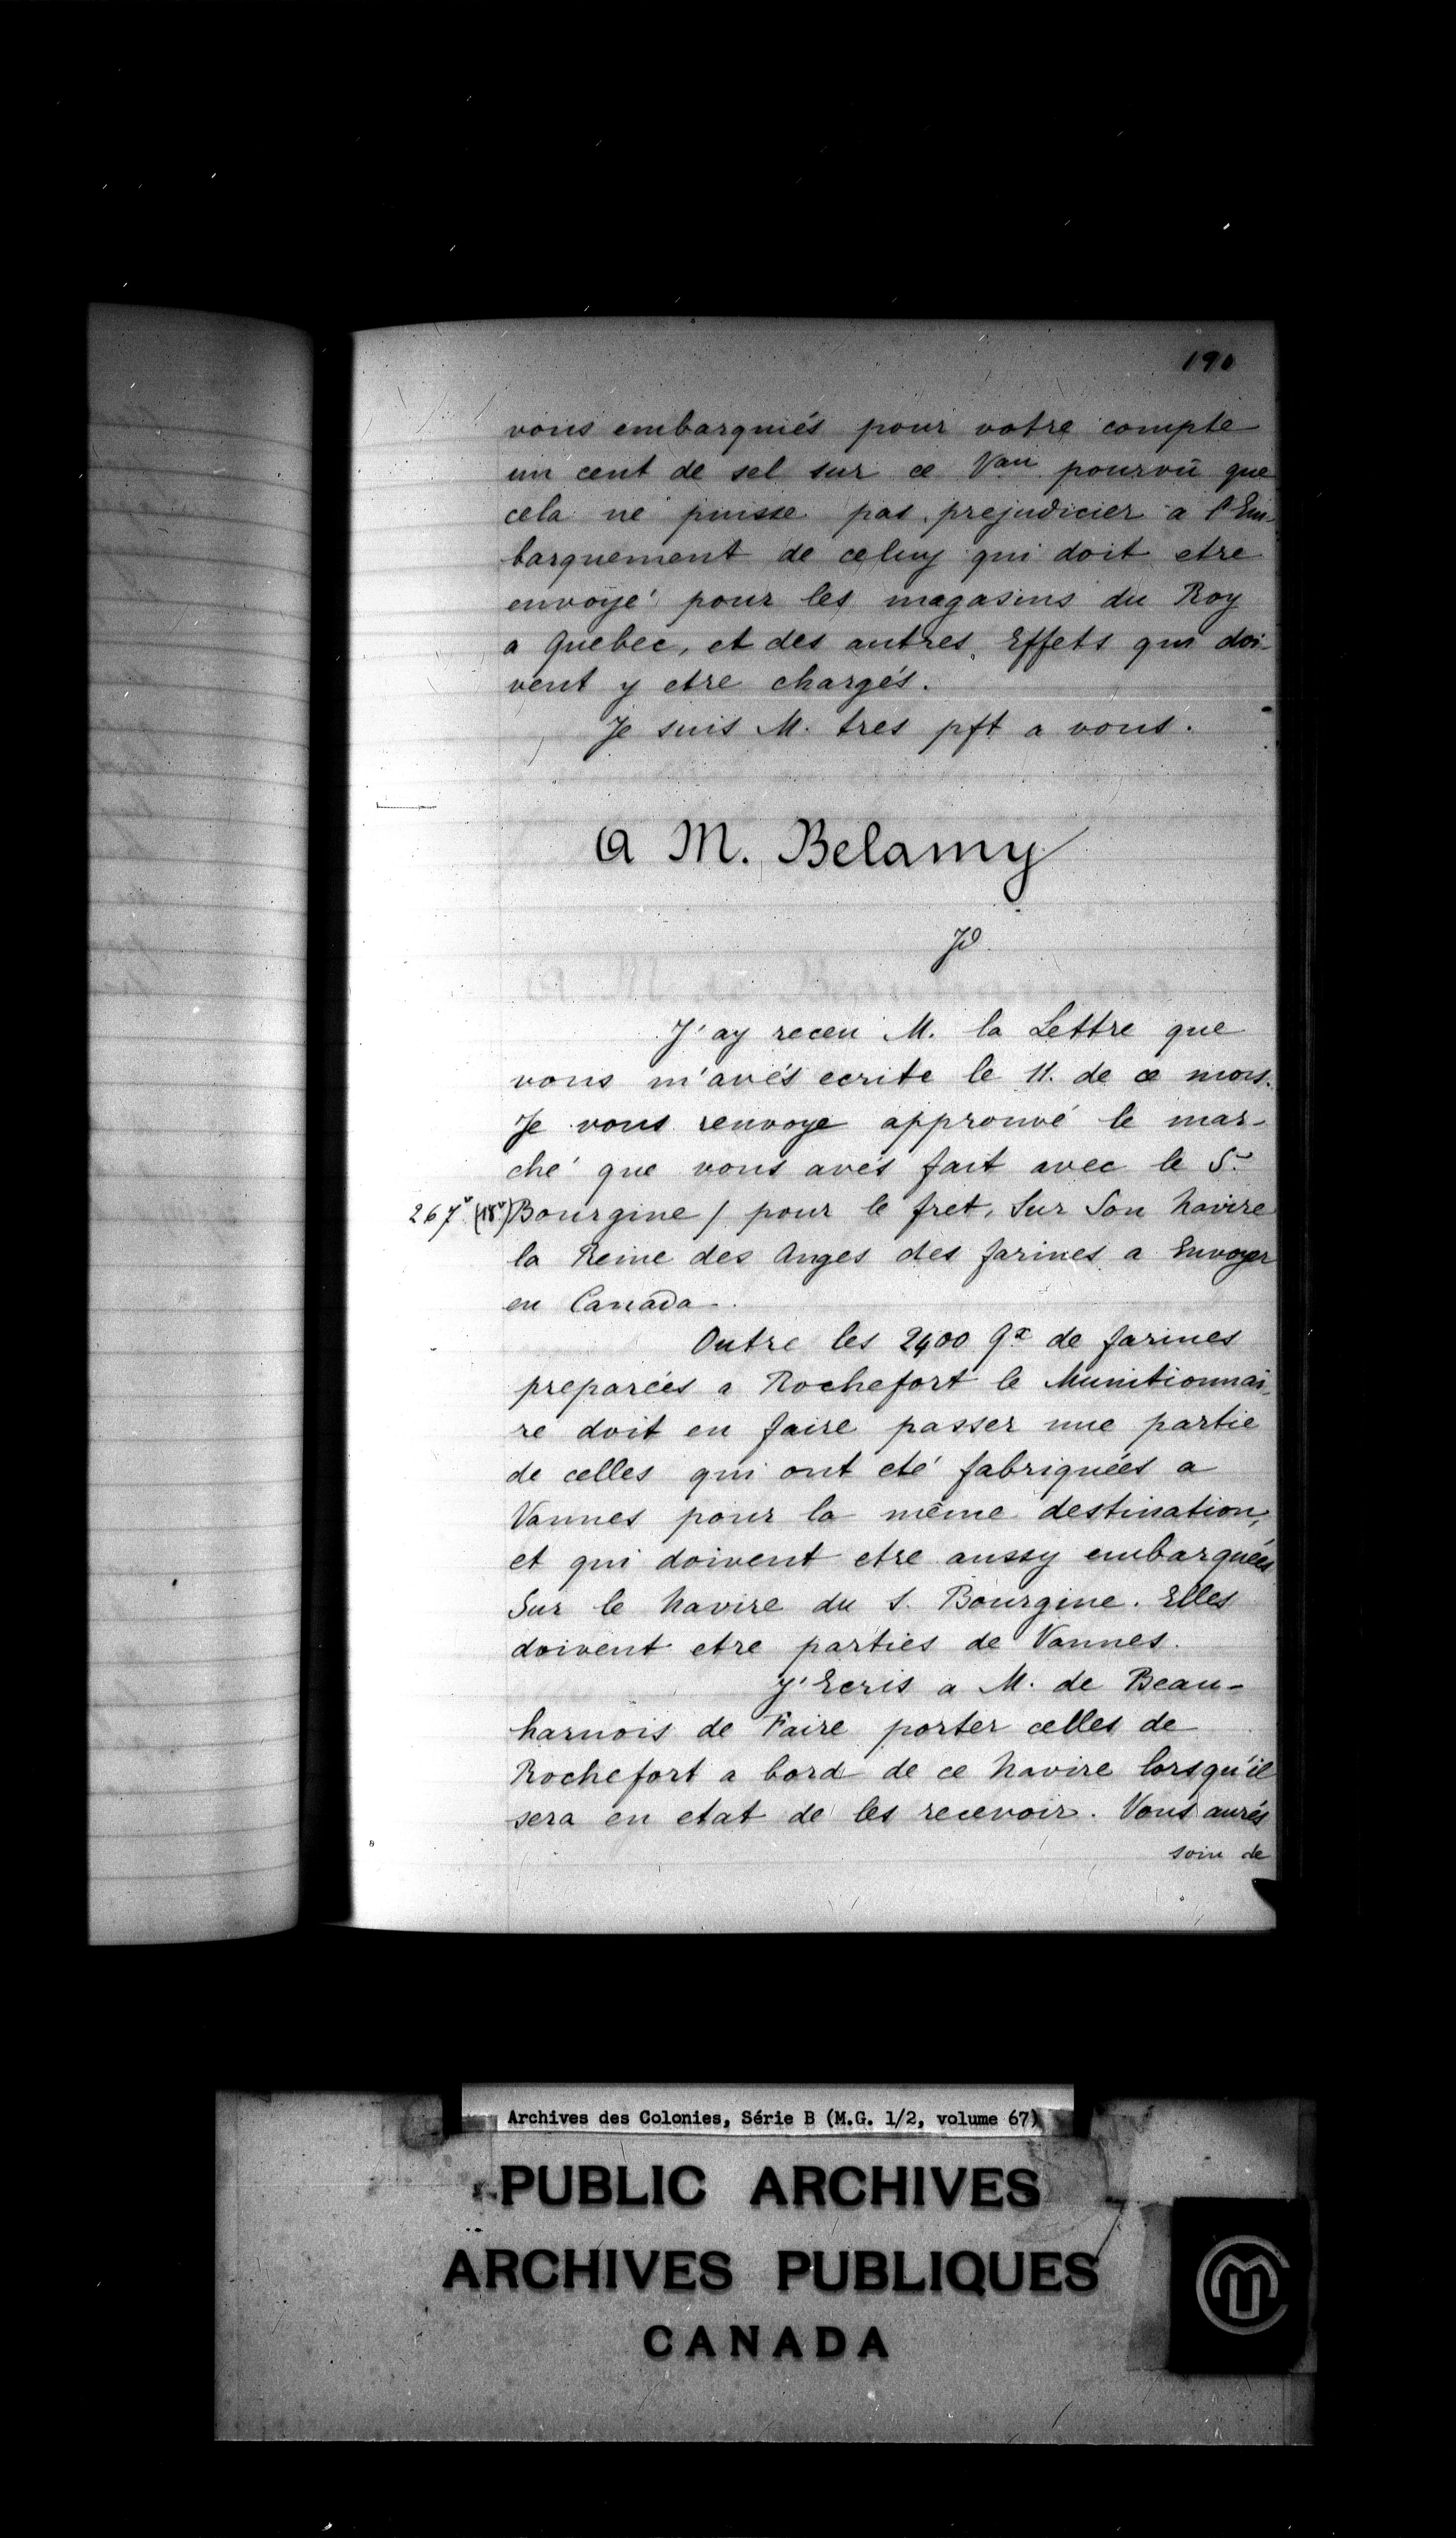 190
vous embarquiés pour votre compte
un cent de sel sur ce Vau pourvû que
cela ne puisse pas prejudicier a l'Em-
barquement de celuy qui doit etre
envoyé pour les magasins du Roy
a Quebec, et des autres Effets qui doi-
vent y etre chargés.
Je suis M. tres pft a vous.
A M. Belamy
Jd
J'ay receu M. la Lettre que
vous m'avés ecrite le 11. de ce mois.
Je vous renvoye approuvé le mar-
ché que vous avés fait avec le S.
267v (18v) Bourgine / pour le fret, Sur Son Navire
la Reine des Anges des farines a Envoyer
en Canada.
Outre les 2400 qx de farines
preparées a Rochefort le Munitionnai-
re doit en faire passer une partie
de celles qui ont eté fabriquées a
Vannes pour la même destination,
et qui doivent etre aussy embarquées
Sur le Navire du S. Bourgine. Elles
doivent etre parties de Vannes.
J'Ecris a M. de Beau-
harnois de Faire porter celles de
Rochefort a bord de ce Navire lorsqu'il
sera en etat de les recevoir. Vous aurés
soin de
Archives des Colonies, Série B (M.G. 1/2, volume 67)
PUBLIC ARCHIVES
ARCHIVES PUBLIQUES
CANADA